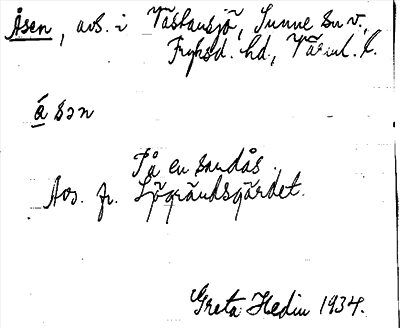 Åsen, avs. i Västansjö, Sunne sn v.,
Fryksd. hd, Värml. l.
å sən
På en sandås.
Avs. fr. Sjögrändsgärdet.
Greta Hedin 1934.